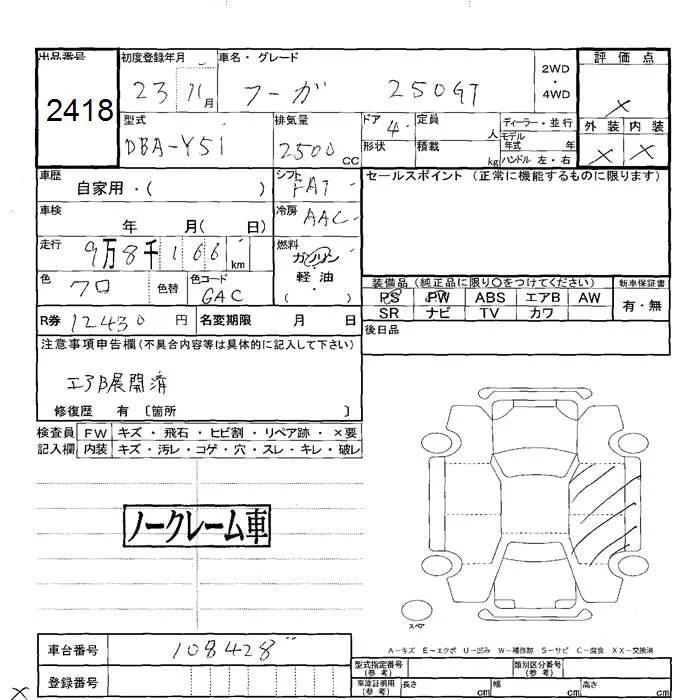 出品番号 初度登録年月 車名・グレード 2WD・4WD 評価点
2418 23 11月 フーガ 250GT ×
型式 排気量 ドア 定員 人 ディーラー・並行 外装 内装
DBA-Y51 2500cc 4 形状 積載 kg モデル年式 年 ハンドル 左・右 × ×
車歴 自家用・( ) シフト FAT セールスポイント(正常に機能するものに限ります)
車検 年 月( 日) 冷房 AAC
走行 9万8千166km 燃料 ガソリン 軽油 ( )
色 クロ 色替 色コード GAC
装備品(純正品に限り○をつけてください) 新車保証書
PS PW ABS エアB AW 有・無
SR ナビ TV カワ
R券 12430円 名変期限 月 日 後日品
注意事項申告欄(不具合内容等は具体的に記入して下さい)
エアB展開済
修復歴 有 〔箇所 〕
検査員 FW キズ・飛石・ヒビ割・リペア跡・×要
記入欄 内装 キズ・汚レ・コゲ・穴・スレ・キレ・破レ
ノークレーム車
スペア
A-キズ E-エクボ U-凹み W-補修跡 S-サビ C-腐食 XX-交換済
車台番号 108428
登録番号
型式指定番号(参考) 類別区分番号(参考)
車庫証明用(参考) 長さ cm 幅 cm 高さ cm
×